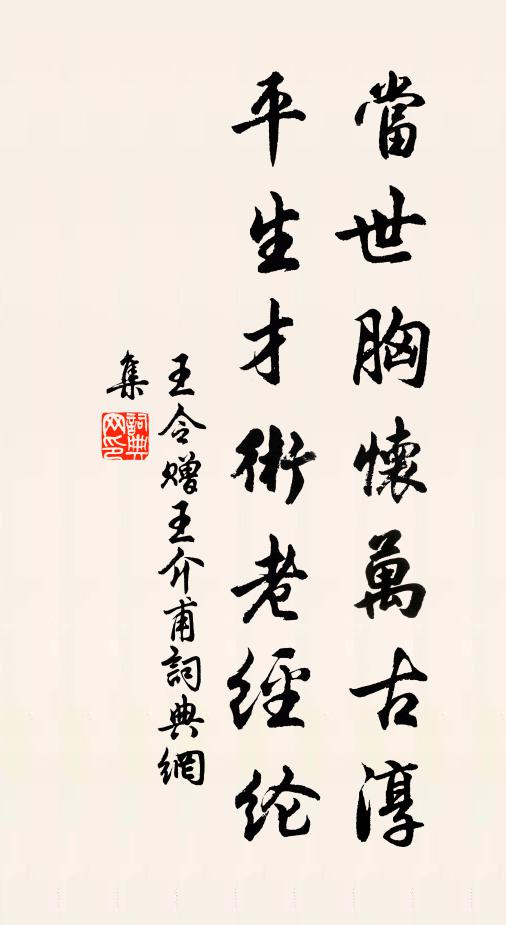 當世胸懷萬古淳
平生才術老經纶
王令赠王介甫詞典網
集
詞典
网印